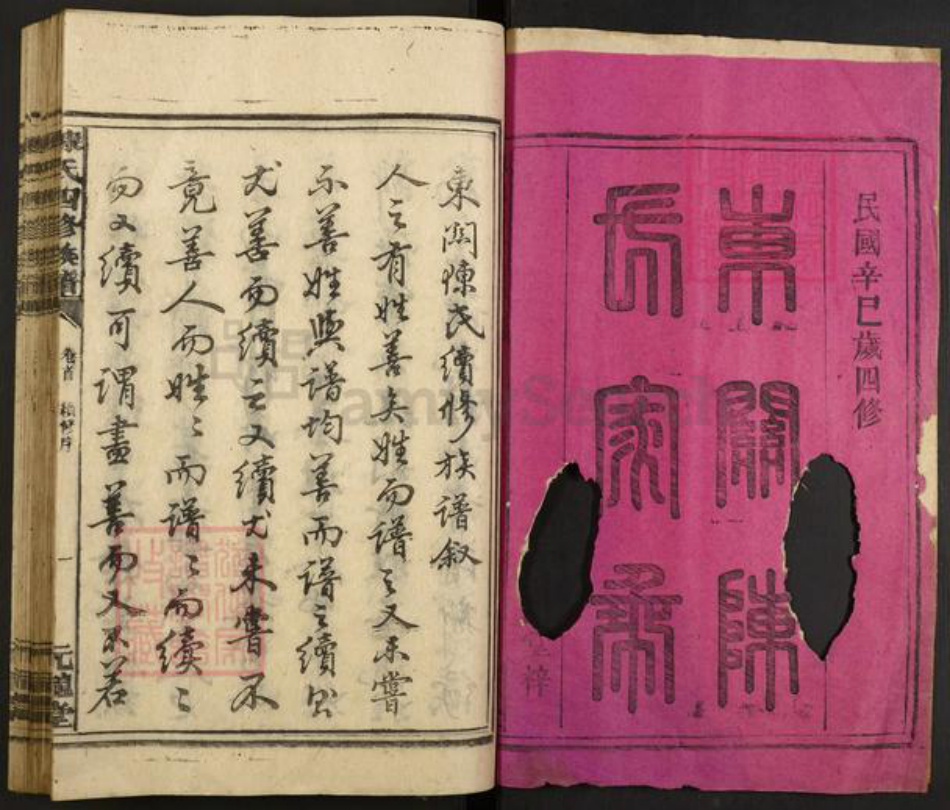 民國辛巳歲四修
東關陳
氏家乘
梓
東關陳氏續修族譜叙
人之有姓善矣姓而譜之又未嘗
不善姓與譜均善而譜之續出
尤善而續之又續尤未嘗不
竟善人而姓之而譜之而續之
而又續可謂盡善而又不若
陳氏四修族譜
卷首
續修序
一
元龍堂
FamilySearch